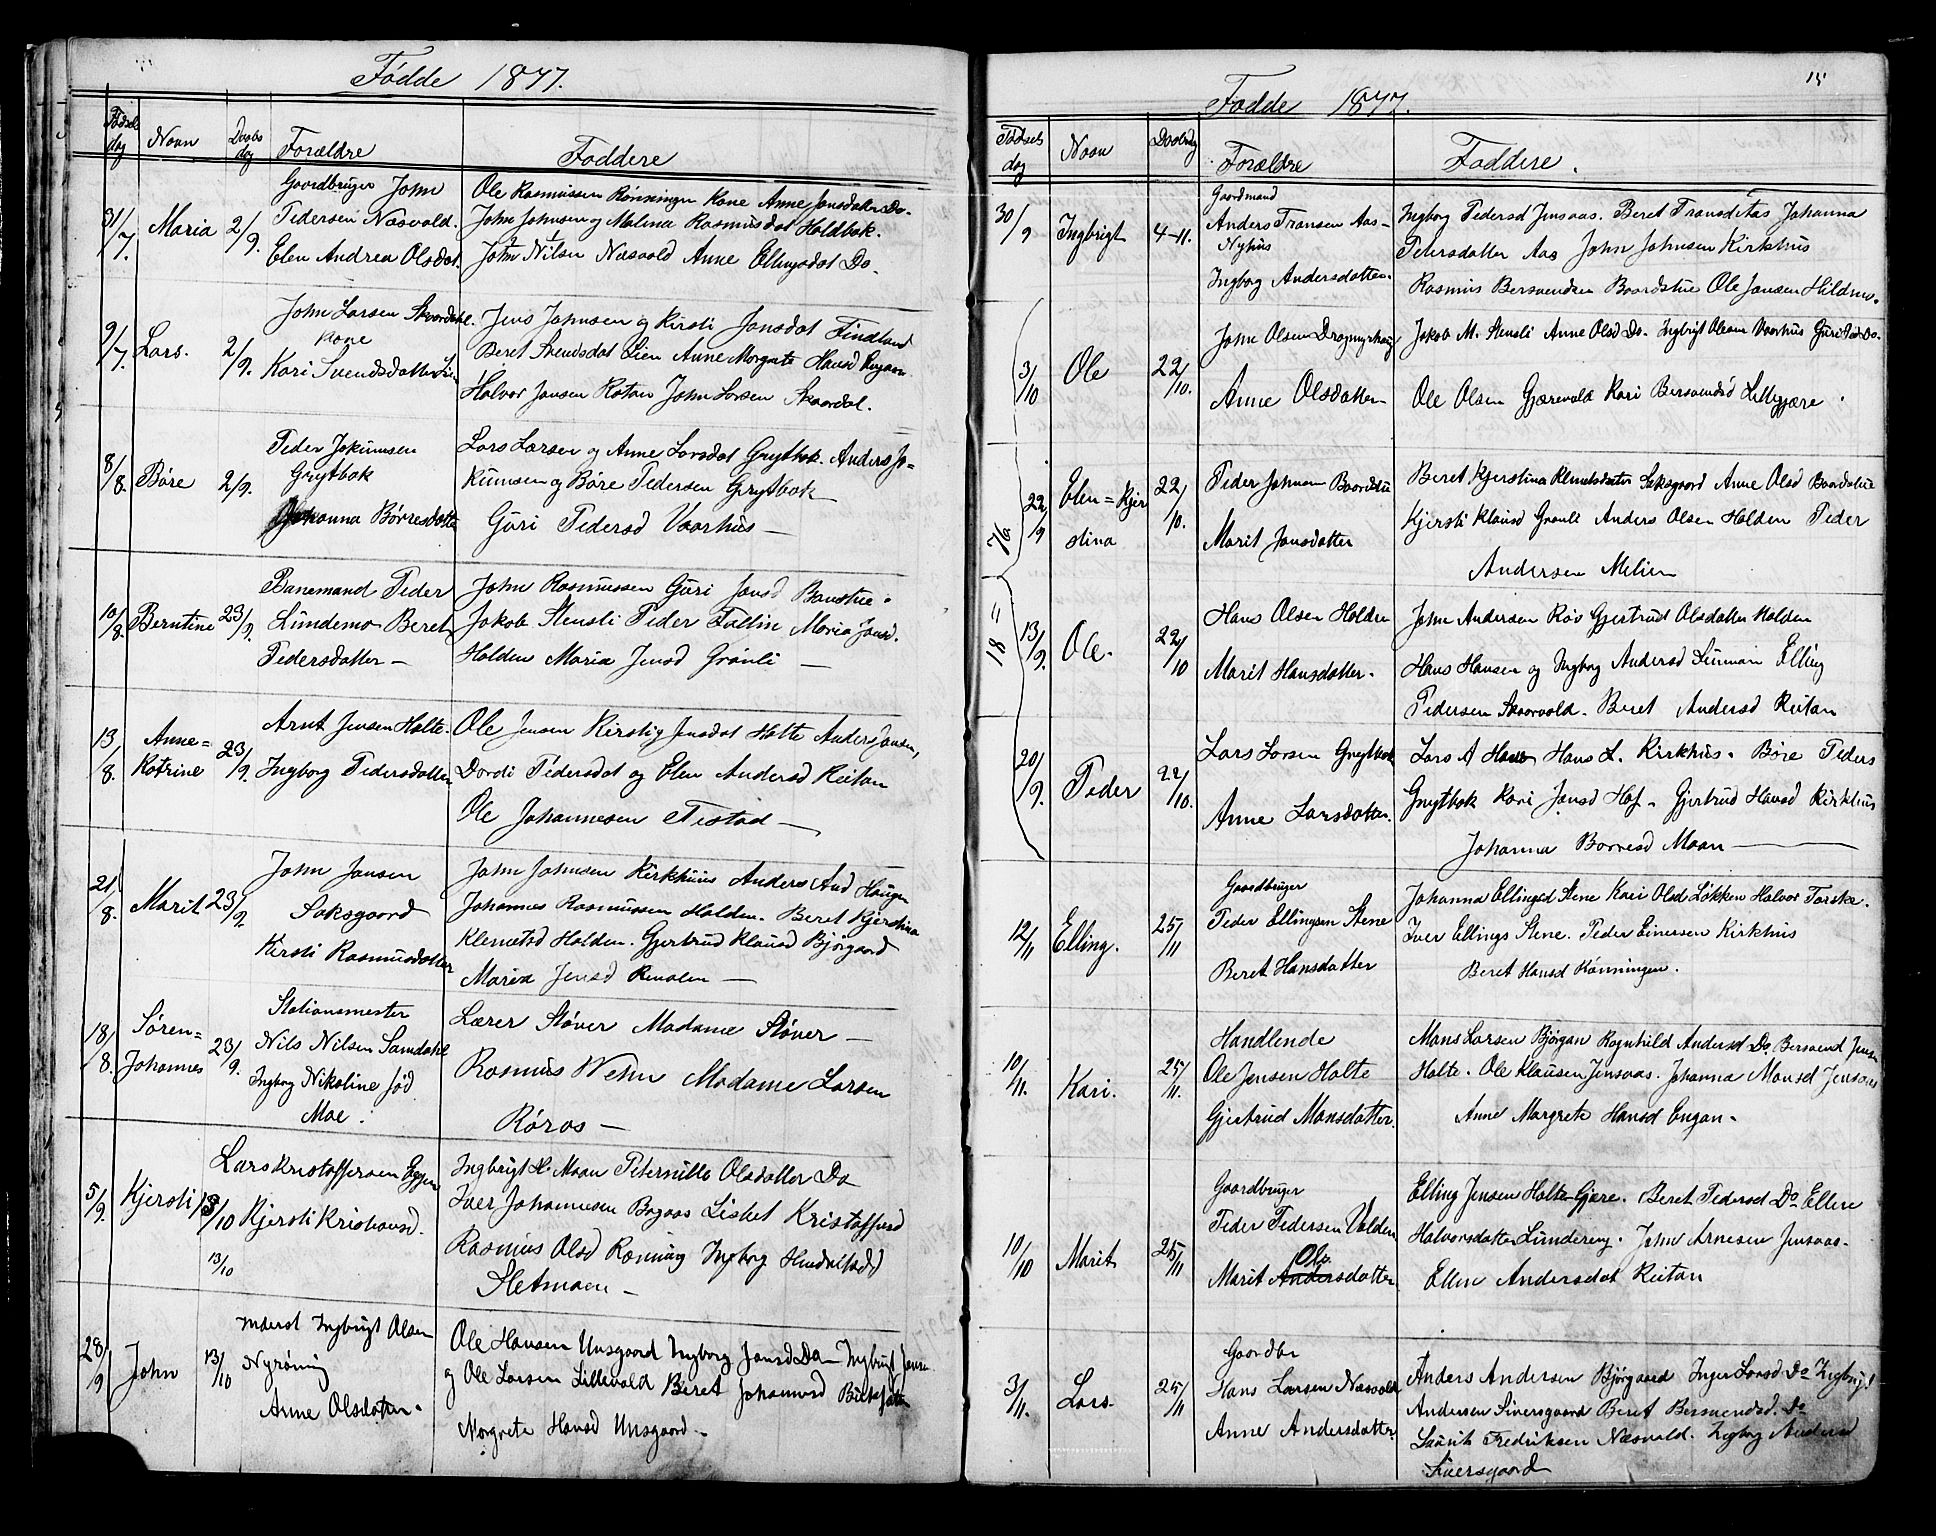 Fødde 1877.
Fødsels dag Navn Daabs dag Forældre Faddere
31/7. Maria 2/9.
Gaardbruger John
Pedersen Næsvold.
Elen Andrea Olsdat.
Ole Rasmussen Rønningen Kone Anne Jonsdatr Do.
John Johnsen og Malina Rasmusdat Holdbok.
John Nilsen Næsvold Anne Ellingsdat Do.
9/7. Lars. 2/9.
John Larsen Skaardahl.
Kone
Kari Svendsdatter Lien
Jens Johnsen og Kirsti Jonsdat Findland
Beret Svendsdat Lien Anne Margrete Hansd Engaen
Halvor Jansen Rotvo John Larsen Skaardal.
8/8. Børe 2/9.
Peder Jokumsen
Grytbok
Johanna Børresdatter
Lars Larsen og Anne Larsdat Grytbok. Anders Jo-
kumsen og Børe Pedersen Grytbok
Guri Pedersd Vaarhus —
10/8. Berntine 23/9.
Banemand Peder
Lundemo Beret
Pedersdatter —
John Rasmussen Guri Jonsd Bonstue.
Jakob Stensli Peder Follin Maria Jonsd.
Holden Maria Jensd Grønli —
13/8. Anne= Katrine 23/9.
Arnt Jensen Holte.
Ingborg Pedersdatter
Ole Jensen Kirsti Jensdat Holte Anders Jansen,
Dordi Pedersdat og Elen Andersd Reitan
Ole Johannesen Fistad —
21/8. Marit 23/9.
John Jansen
Saksgaard
Kirsti Rasmusdatter
John Johnsen Kirkhuus Anders And Haugen
Johannes Rasmussen Holden. Beret Kjerstina
Klemetsd Holden. Gjertrud Klausd Bjørgaard
Maria Jensd Renolen —
18/8. Søren= Johannes 23/9.
Stationsmester
Nils Nilsen Samdahl
Ingbog Nikoline fød
Moe.
Lærer Støver Madame Støver —
Rasmus Wehn Madame Larsen
Røros —
5/9. Kjersti 13/10
Lars Kristoffersen Eggen
Kjersti Kristiansd.
13/10
Ingbrigt H. Moan Peternille Olsdatter Do
Iver Johannesen Bogaas Lisbet Kristoffersd
Rasmus Olsd Rønning Ingborg
Sletmoen —
28/9 John 13/10
Inderst Ingbrigt Olsen
Nyrøning
Anne Olsdatter.
Ole Hansen Unsgaard Ingborg Jonsd Do — Ingbrigt Jansen
og Ole Larsen Lillevold Beret Johannesd
Margrete Hansd Unsgaard —
15
Fødde 1877.
Fødsels dag Navn Daabsdag Forældre Faddere.
30/9 Ingbrigt 4-11.
Gaardmand
Anders Transen Aas-
Nyhus
Ingborg Andersdatter.
Ingborg Pedersd Jensaas. Beret Transd Aas Johanna
Petersdatter Aas John Johnsen Kirkhus
Rasmus Bersvendsen Baardstue Ole Jansen Hildmo.
3/10 Ole 22/10.
John Olsen Dragmyrhaug
Anne Olsdatter
Jakob M. Stensli Anne Olsd Do. Ingbrigt Olsen Vaarhus Guri Do.
Ole Olsen Gjærevold Kari Bersvendsd Lillegjære.
18=76
22/9 Elen=Kjer stina 22/10.
Peder Johnsen Baardstu
Marit Jonsdatter
Beret Kjerstina Klemetsdatter Saksgaard Anne Olsd Baardstue
Kjersti Klausd Grønli Anders Olsen Holden Peder
Andersen Melien
13/9. Ole. 22/10
Hans Olsen Holden
Marit Hansdatter.
John Andersen Røv Gjertrud Olsdatter Holden
Hans Hansen og Ingbog Andersd Elling
Pedersen Skaarvold. Beret Andersd Reitan
20/9. Peder 22/10.
Lars Larsen Grytbok
Anne Larsdatter.
Lars A Hans L. Kirkhus. Børe Peders
Grytbok Kari Jonsd Hof. Gjertrud Hansd Kirkhus
Johanna Børresd Moan —
12/11 Elling. 25/11
Gaardbruger
Peder Ellingsen Stene
Beret Hansdatter
Johanna Ellingsd Stene Kari Olsd Løkken Halvor Farske.
Iver Ellings Stene. Peder Einersen Kirkhus
Beret Hansd Rønningen.
10/11. Kari. 25/11.
Handlende
Ole Jensen Holte
Gjertrud Mansdatter.
Mans Larsen Bjørgan Ragnhild Andersd Do Bersvend Jensen
Holte. Ole Klausen Jensaas. Johanna Mansd Jensaas
Anne Margrete Hansd Engan.
10/10 Marit 25/11
Gaardbruger
Peder Pedersen Volden
Ols
Marit Andersdatter
Elling Jensen Holte Gjære. Beret Pedersd Do Ellen
Halvorsdatter Lundereng. John Arnesen Jensaas.
Ellen Andersdat Reitan
3/11. Lars. 25/11
Gaardbr
Hans Larsen Næsvold
Anne Andersdatter.
Anders Andersen Bjørgaard Inger Larsd Do Ingbrigt
Andersen Siversgaard Beret Bersvendsd. Do
Laurits Fredriksen Næsvold. Ingbog Andersd
Siversgaard